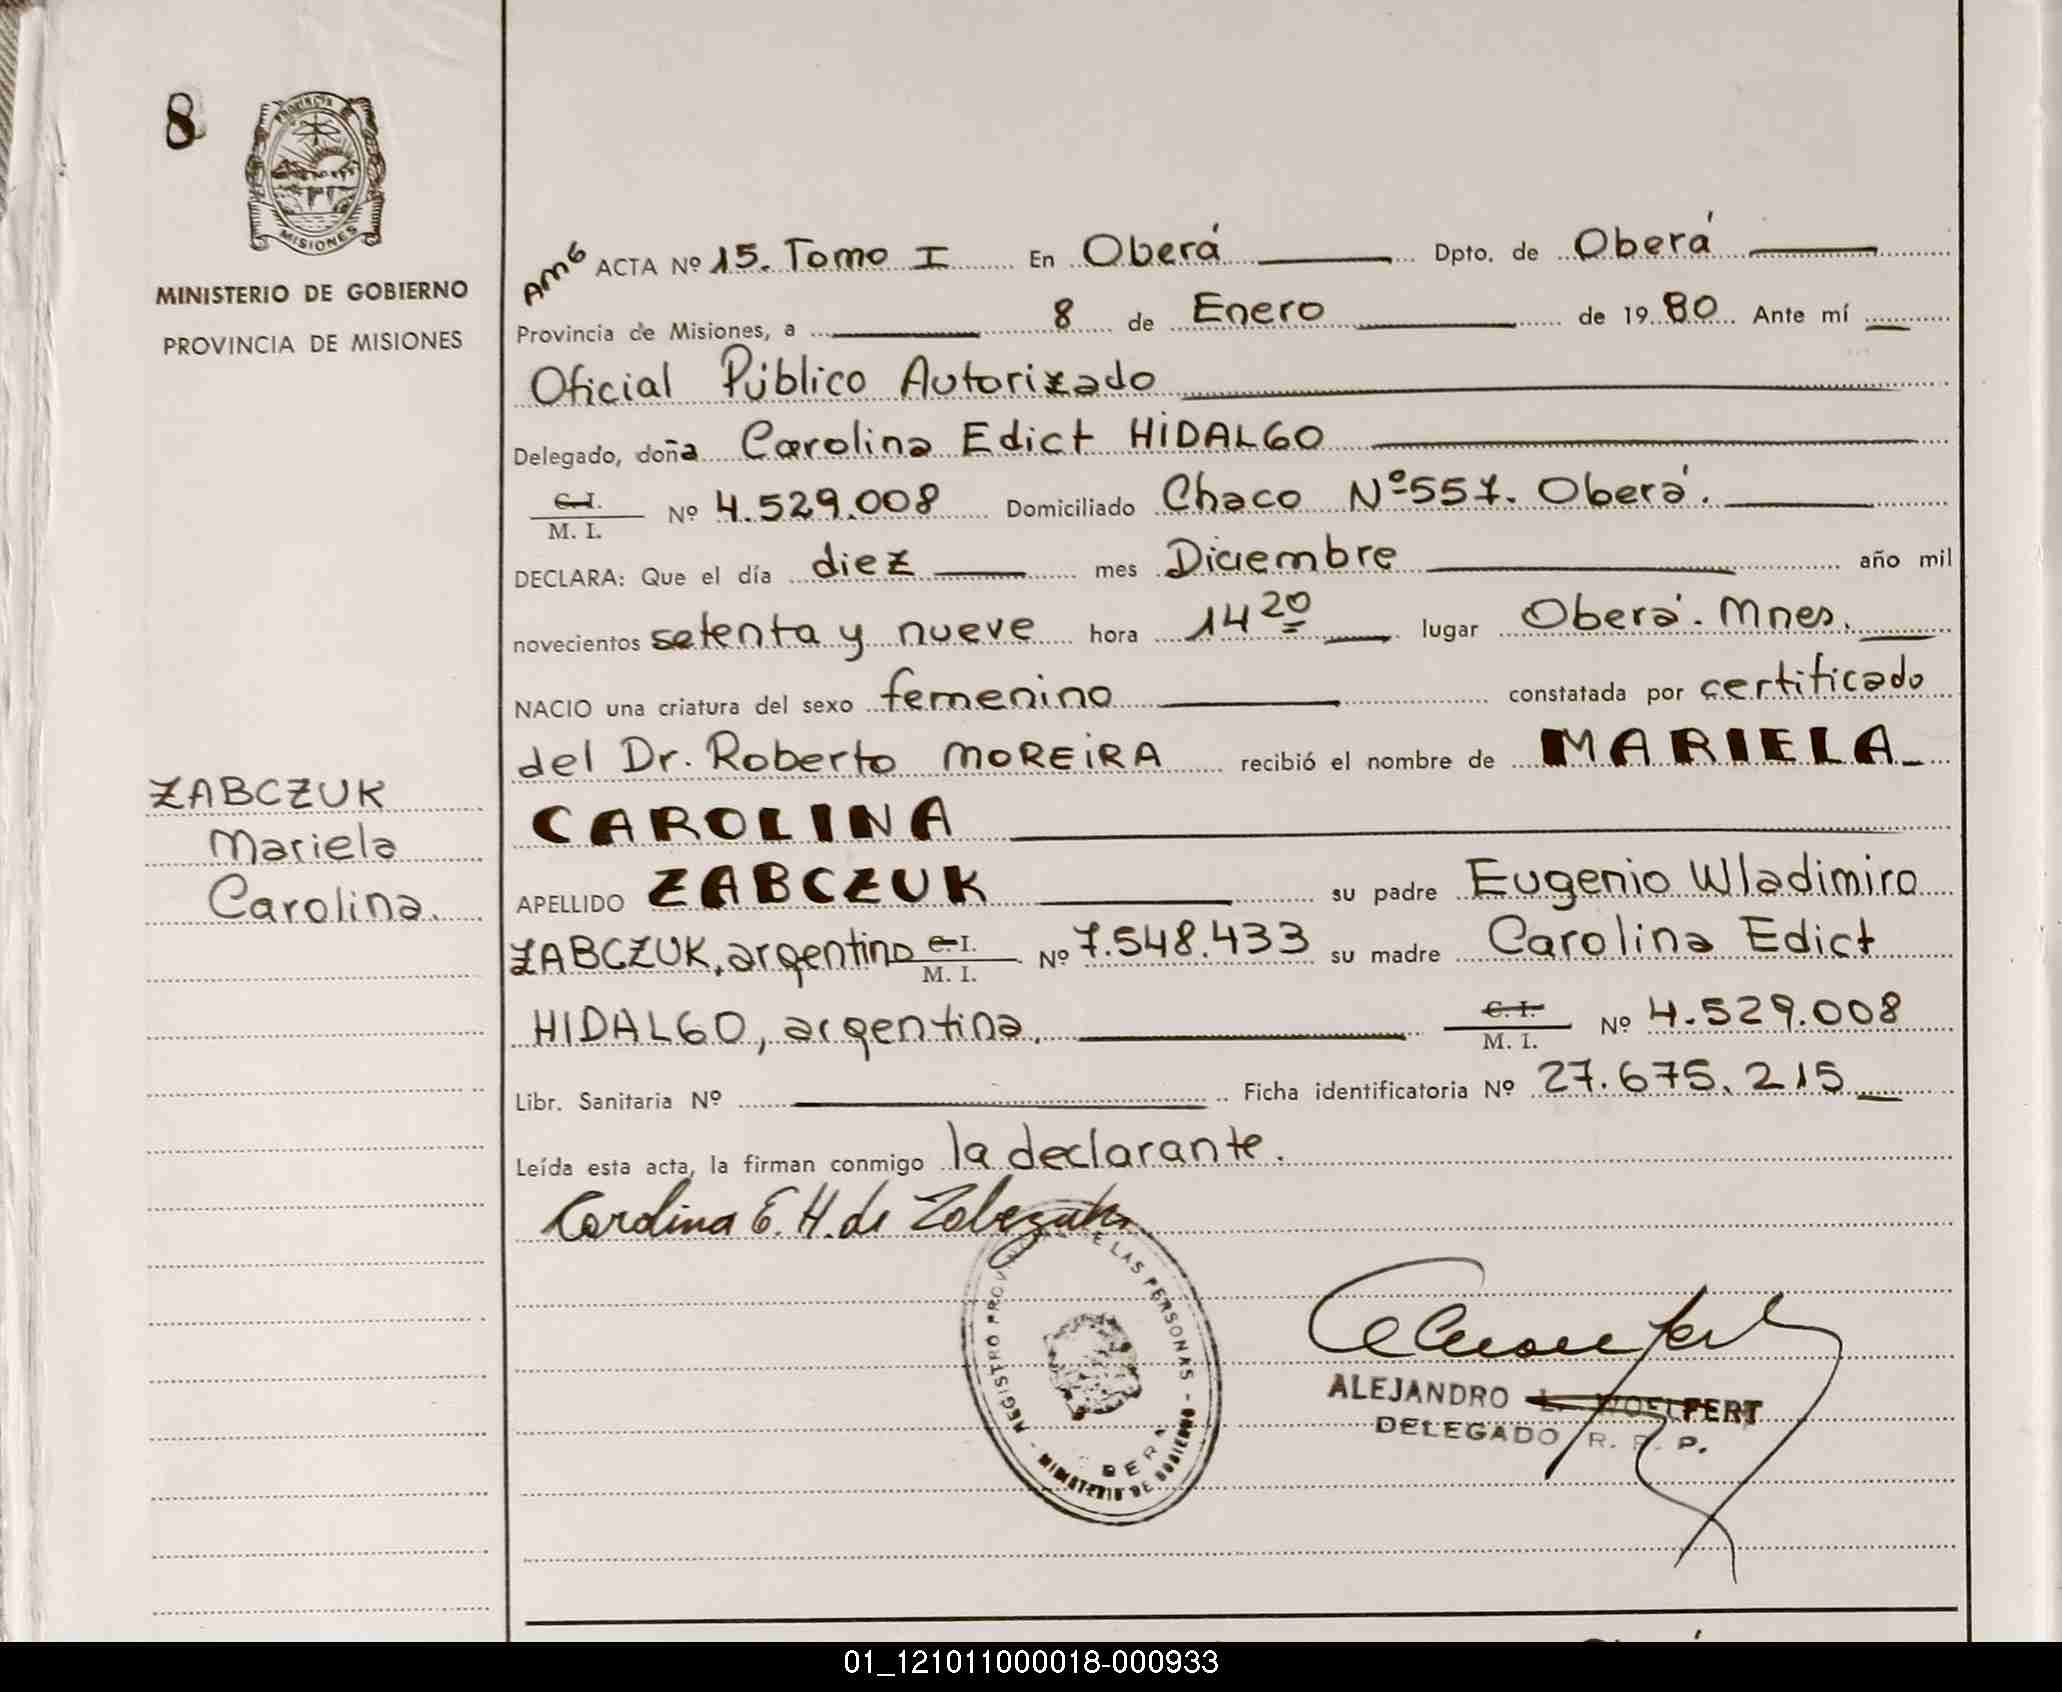 8
PROVINCIA
MISIONES
MINISTERIO DE GOBIERNO
PROVINCIA DE MISIONES
ZABCZUK
Mariela
Carolina.
AMG ACTA Nº 15. Tomo I En Oberá Dpto. de Oberá
Provincia de Misiones, a 8 de Enero de 19 80 Ante mí
Oficial Público Autorizado
Delegado, doña Carolina Edict HIDALGO
C. I. M. I. Nº 4.529.008 Domiciliado Chaco Nº 557. Oberá.
DECLARA: Que el día diez mes Diciembre año mil
novecientos setenta y nueve hora 14 20 lugar Oberá. Mnes.
NACIO una criatura del sexo femenino constatada por certificado
del Dr. Roberto MOREIRA recibió el nombre de MARIELA
CAROLINA
APELLIDO ZABCZUK su padre Eugenio Wladimiro
ZABCZUK, argentino C. I. M. I. Nº 7.548.433 su madre Carolina Edict
HIDALGO, argentina. C. I. M. I. Nº 4.529.008
Libr. Sanitaria Nº Ficha identificatoria Nº 27.675.215
Leída esta acta, la firman conmigo la declarante.
Carolina E. H. de Zabczuk
REGISTRO PROV E LAS PERSONAS - MINISTERIO DE GOBIERNO -
BERA
ALEJANDRO L. WOELFERT
DELEGADO R. P. P.
01_121011000018-000933